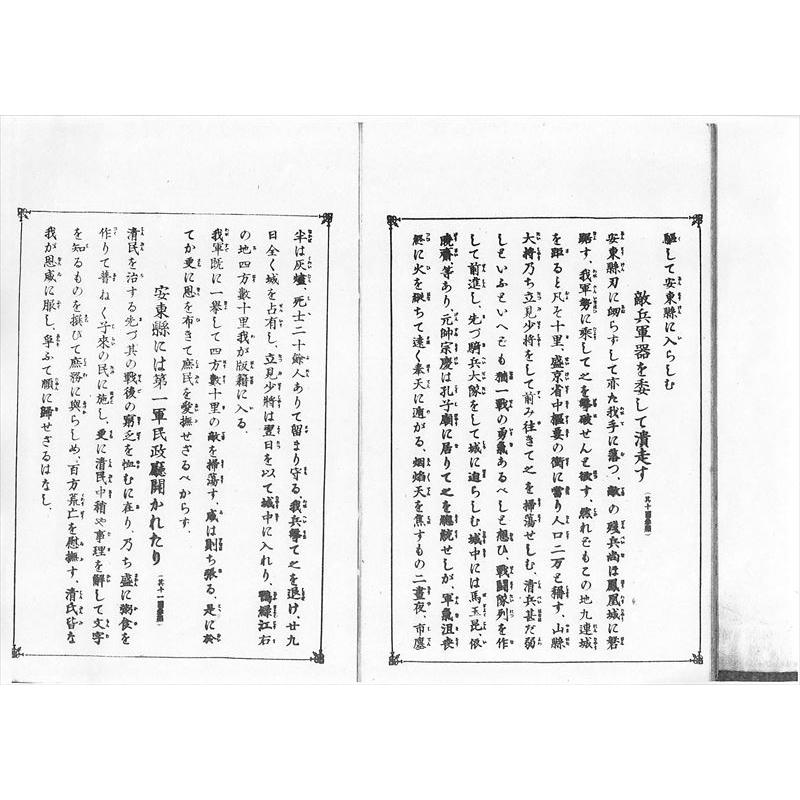 驅して安東縣に入らしむ
敵兵軍器を委して潰走す
安東縣刃に衂らすして亦た我手に落つ、敵の殘兵尚ほ鳳凰城に磐
踞す、我軍勢に乘して之を擊破せんと欲す、然れどもこの地九連城
を距ると凡そ十里、盛京省中樞要の衝に當り人口二万と稱す、山縣
大將乃ち立見少將をして前み往きて之を掃蕩せしむ、淸兵甚だ弱
しといふといへども猶一戰の勇氣あるべしと想ひ、戰鬪隊列を作
して前進し、先づ騎兵大隊をして城に迫らしむ、城中には馬玉昆、依
曉齋等あり、元帥宗慶は孔子廟に居りて之を總統せしが、軍氣沮喪
終に火を縱ちて遠く奉天に遁がる、烟焰天を焦すもの二晝夜、市廛
半は灰燼、死士二十餘人ありて留まり守る、我兵擊て之を退け、廿九
日全く城を占有し、立見少將は翌日を以て城中に入れり、鴨綠江右
の地四方數十里我が版籍に入る、
我軍既に一擧して四方數十里の敵を掃蕩す、威は則ち張る、是に於
てか更に恩を布きて庶民を愛撫せざるべからす、
安東縣には第一軍民政廳開かれたり
淸民を治する先づ其の戰後の窮乏を恤むに在り、乃ち盛に粥食を
作りて普ねく子來の民に施し、更に淸民中稍や事理を解して文字
を知るものを撰びて庶務に與らしめ、百方荒亡を慰撫す、淸民皆な
我が恩威に服し、擧ふて順に歸せざるはなし、